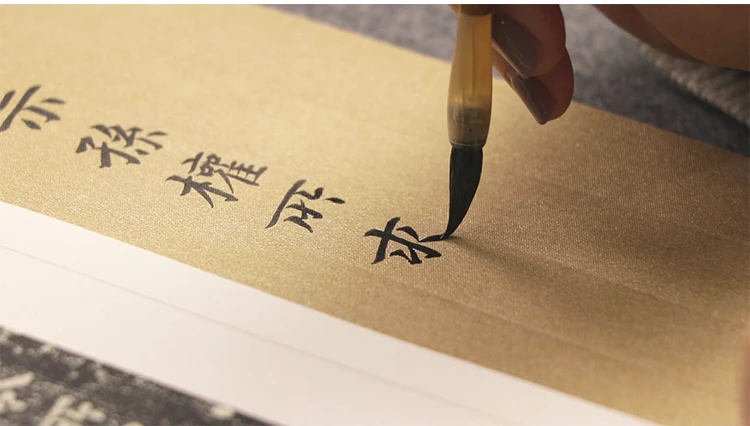 示孫權所求